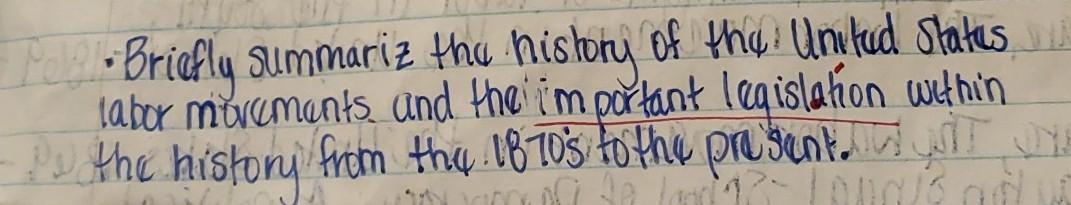 ·Briefly summariz the history of the United States
labor movements and the important legislation within
the history from the 1870's to the present.